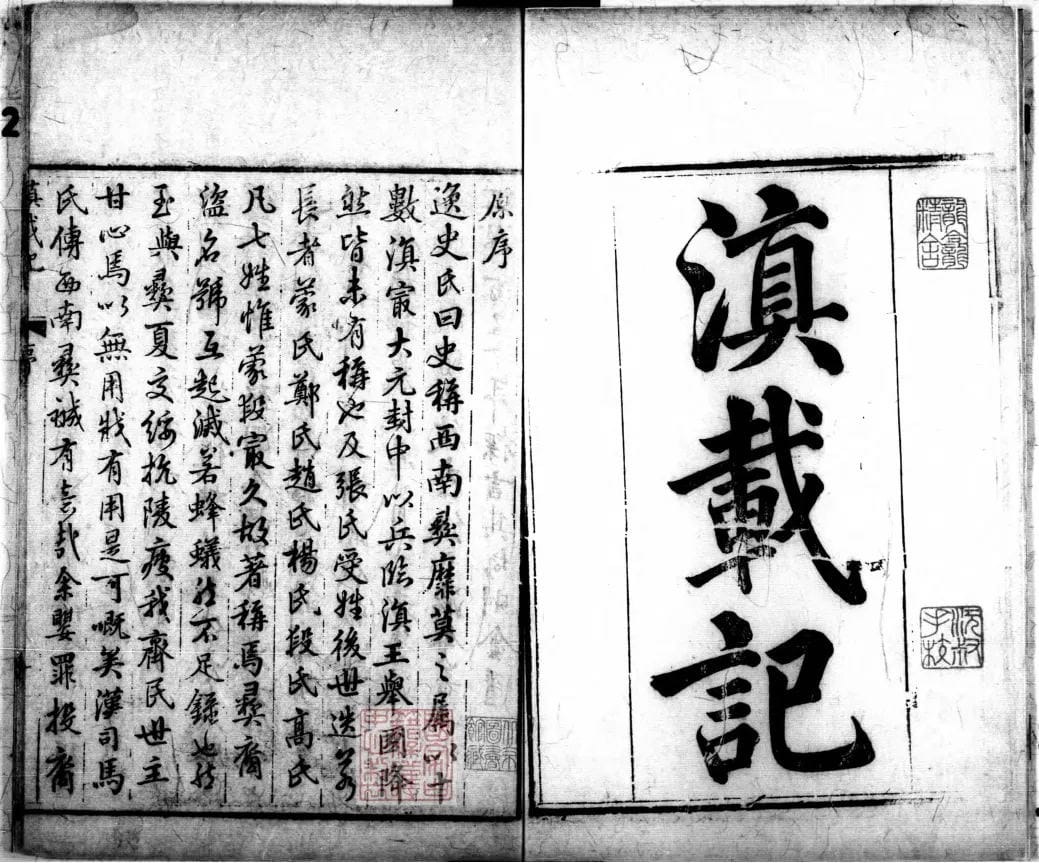 龍龕精舍
滇載記
沅叔手校
原序
逸史氏曰史稱西南彝靡莫之屬以十
數滇㝡大元封中以兵臨滇王舉國降
然皆未有稱也及張氏受姓後世迭爲
長者蒙氏鄭氏趙氏楊氏段氏高氏
凡七姓惟蒙段㝡久故著稱焉彝裔
盜名號互起滅若蜂蟻然不足錄也然
至與彝夏交綏抗陵疲我齊民世主
甘心焉以無用戕有用是可嘅矣漢司馬
氏傳西南彝誠有意哉余嬰罪投裔
滇載記